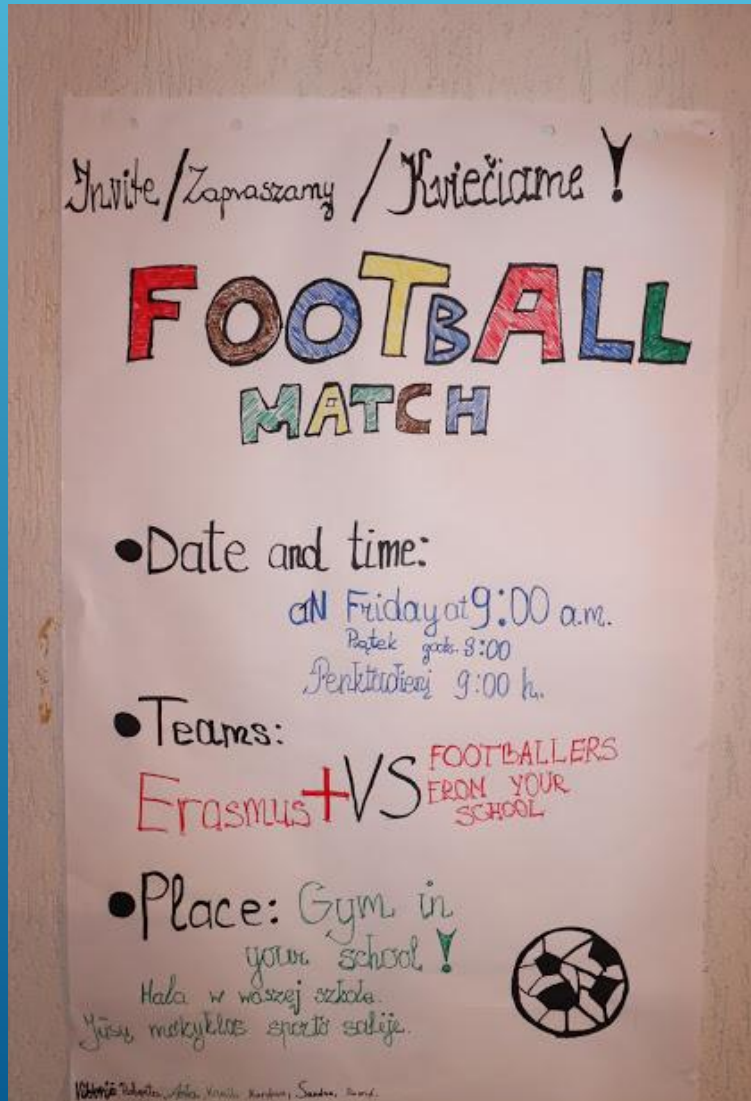 Invite / Zapraszamy / Kviečiame !
FOOTBALL
MATCH
•Date and time:
ON Friday at 9:00 a.m.
Piątek godz. 9:00
Penktadienį 9:00 h.
•Teams:
Erasmus+ VS FOOTBALLERS
FROM YOUR
SCHOOL
•Place: Gym in
your school !
Hala w waszej szkole.
Jūsų mokyklos sporto salėje.
Roberta, Kamil, Sandra,